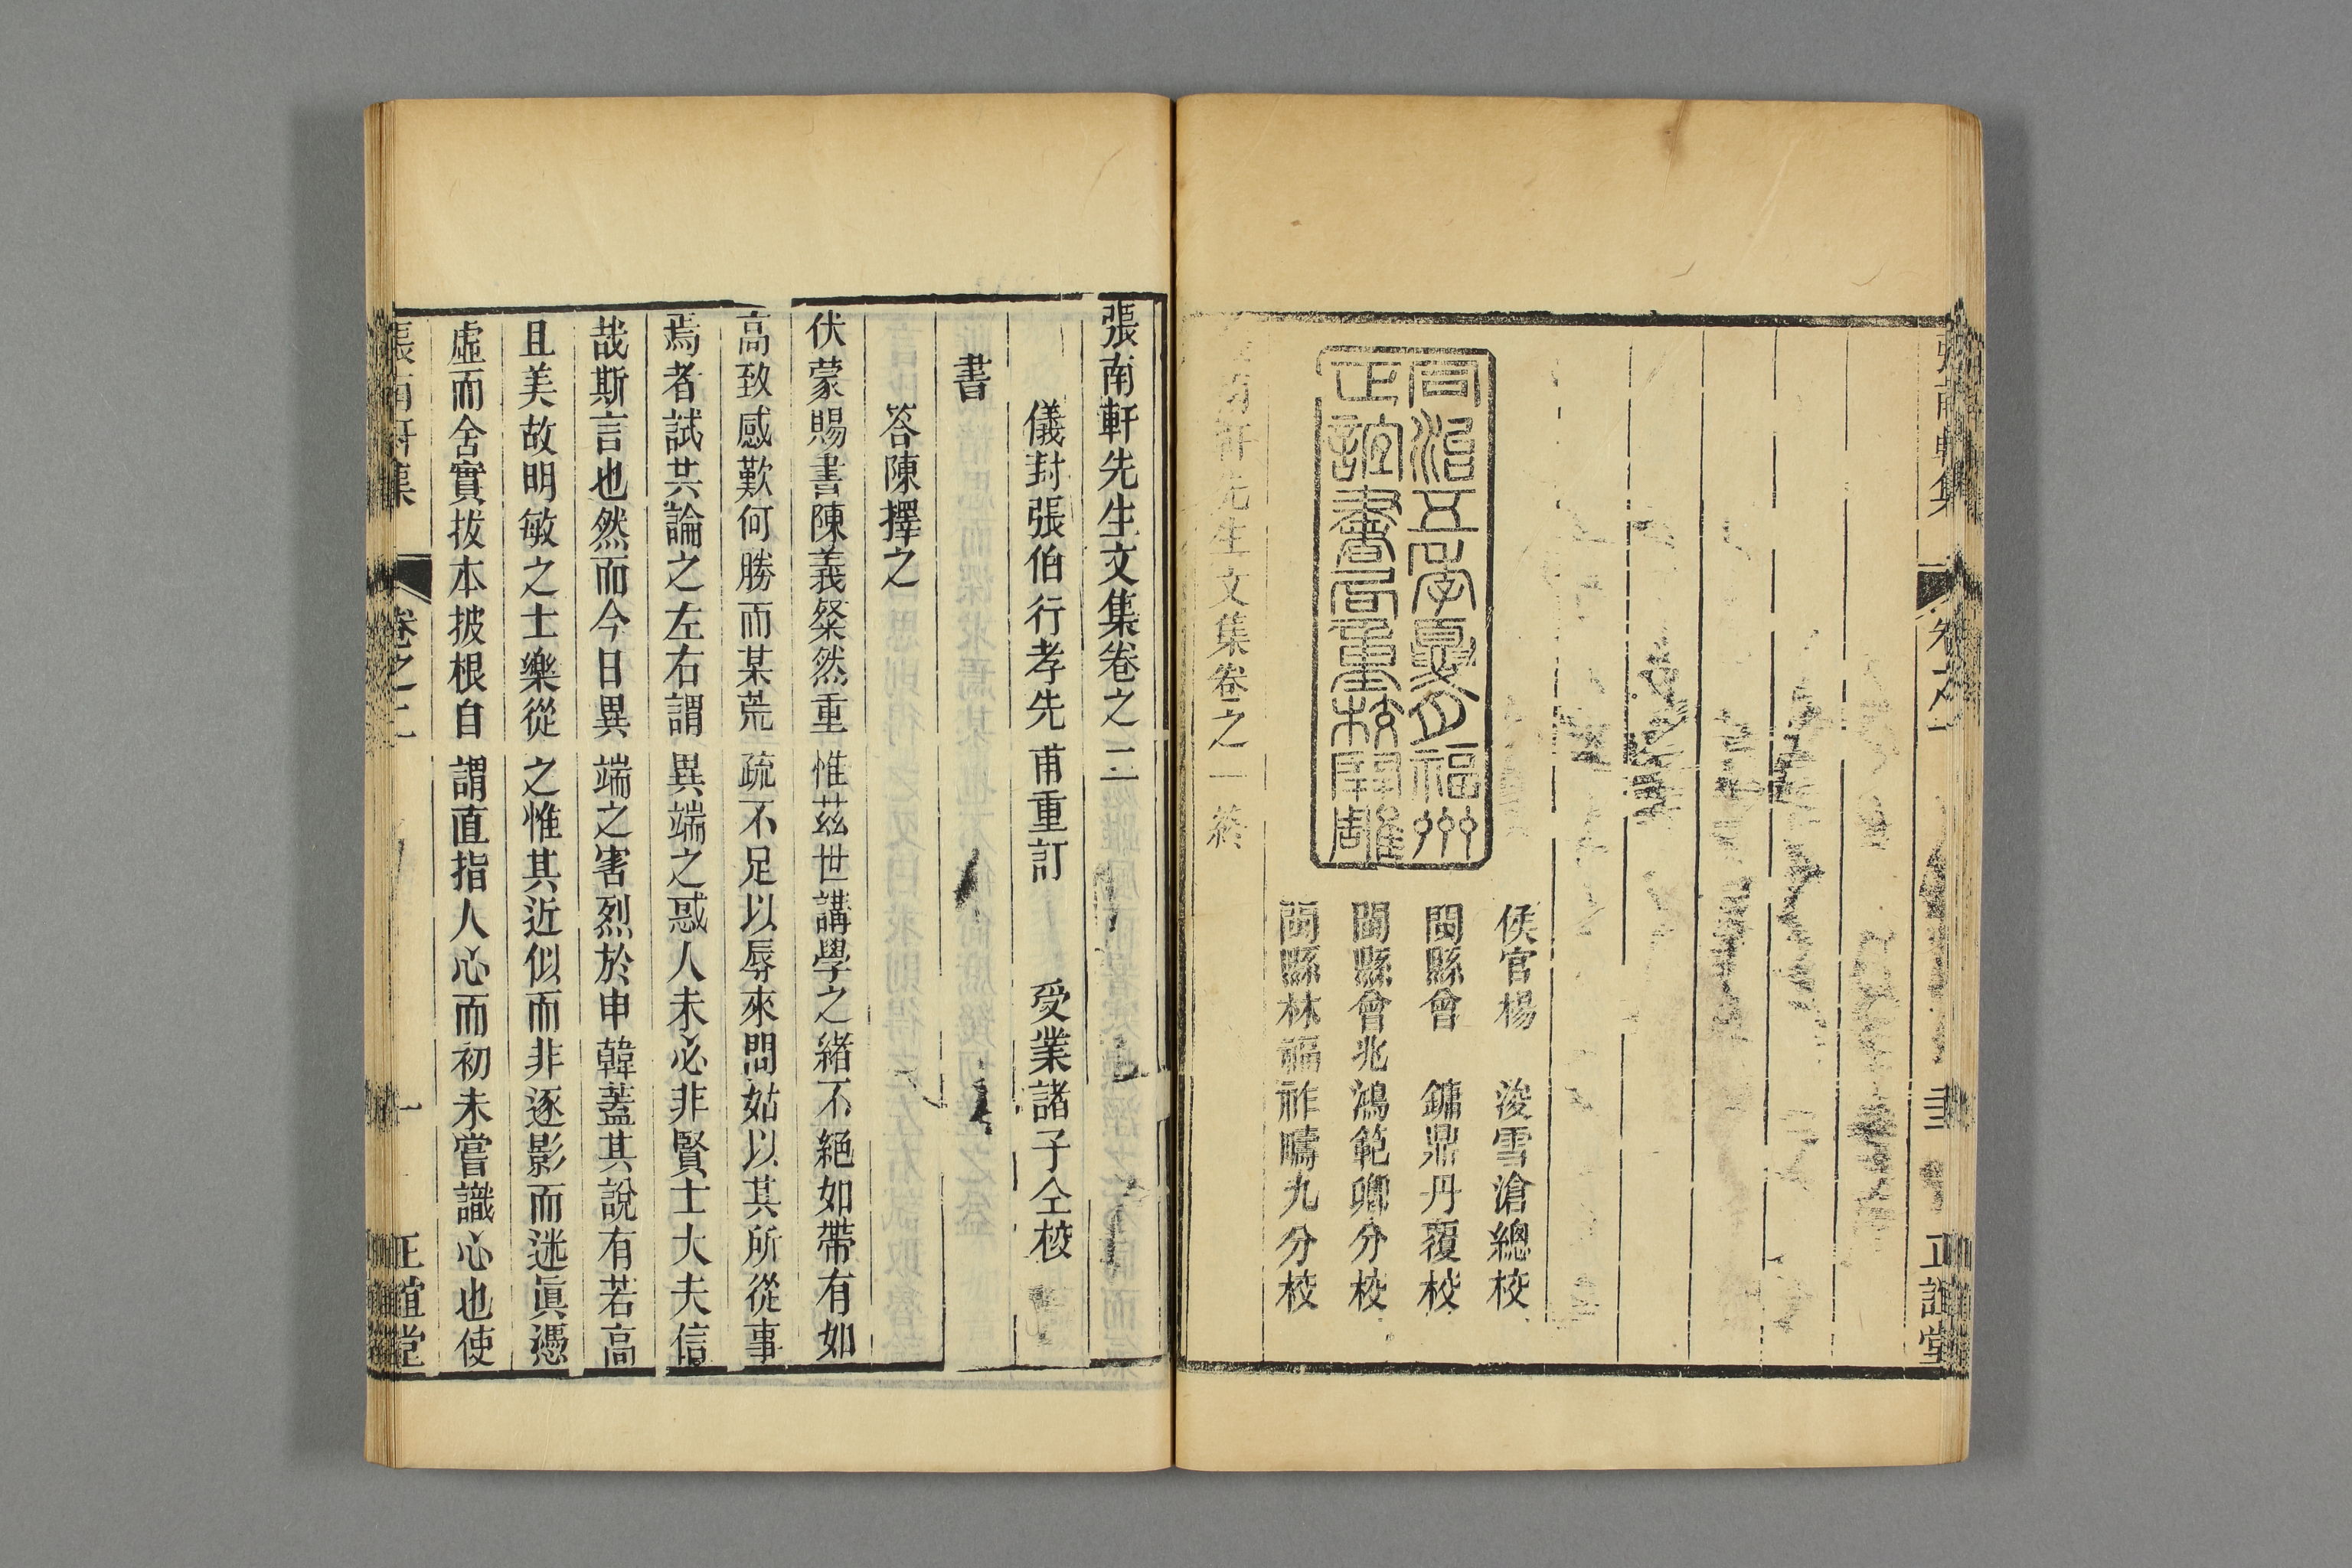 張南軒集
卷之一
正誼堂
侯官楊　浚雪滄總校
閩縣曾　鏞鼎丹覆校
閩縣曾兆鴻範卿分校
閩縣林福祚疇九分校
同治五年夏月福州
正誼書局重校開雕
南軒先生文集卷之一終
張南軒先生文集卷之二
儀封張伯行孝先甫重訂　受業諸子仝校
書
答陳擇之
伏蒙賜書陳義粲然重惟茲世講學之緒不絕如帶有如
高致感歎何勝而某荒疏不足以辱來問姑以其所從事
焉者試共論之左右謂異端之惑人未必非賢士大夫信
哉斯言也然而今日異端之害烈於申韓蓋其說有若高
且美故明敏之士樂從之惟其近似而非逐影而迷眞憑
虛而舍實拔本披根自謂直指人心而初未嘗識心也使
張南軒集
卷之二
一
正誼堂